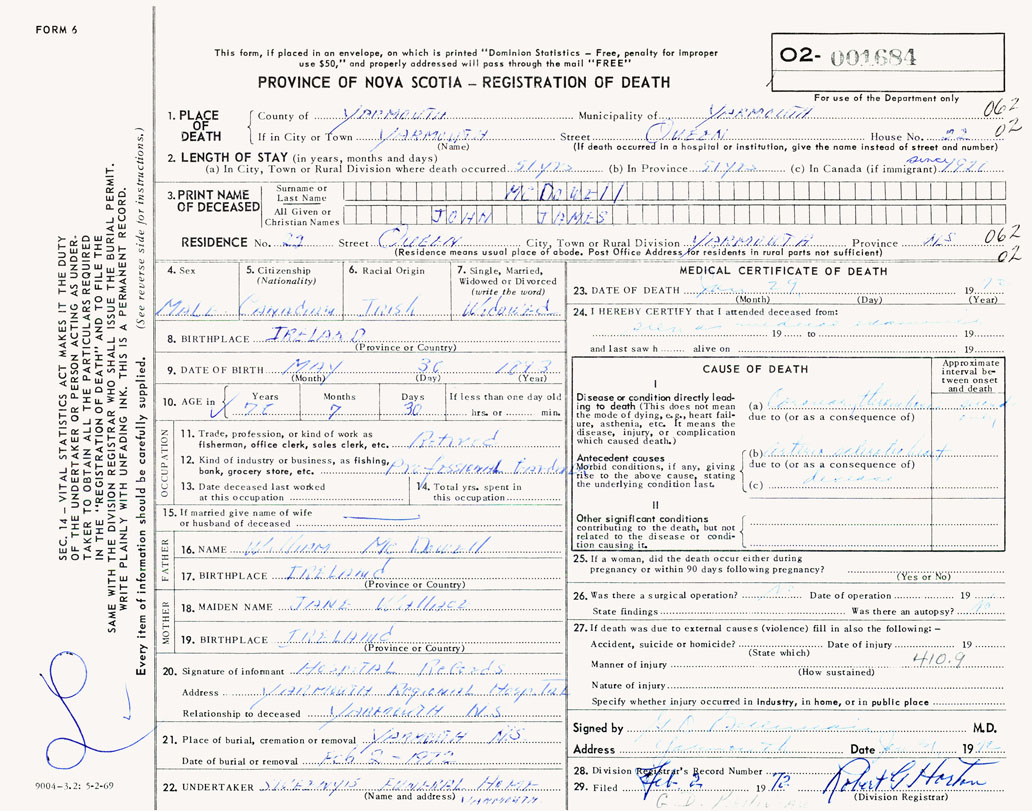 FORM 6
O2- 001684
This form, if placed in an envelope, on which is printed "Dominion Statistics – Free, penalty for improper
use $50," and properly addressed will pass through the mail "FREE"
PROVINCE OF NOVA SCOTIA – REGISTRATION OF DEATH
For use of the Department only
062
02
1. PLACE OF DEATH
County of YARMOUTH Municipality of YARMOUTH
If in City or Town YARMOUTH Street QUEEN House No. 22
(Name) (If death occurred in a hospital or institution, give the name instead of street and number)
2. LENGTH OF STAY (in years, months and days)
(a) In City, Town or Rural Division where death occurred 51 yrs (b) In Province 51 yrs (c) In Canada (if immigrant) since 1921
3. PRINT NAME OF DECEASED
Surname or Last Name McDowell
All Given or Christian Names JOHN JAMES
RESIDENCE No. 22 Street QUEEN City, Town or Rural Division YARMOUTH Province N.S 062
(Residence means usual place of abode. Post Office Address for residents in rural parts not sufficient) 02
4. Sex
MALE
5. Citizenship
(Nationality)
Canadian
6. Racial Origin
Irish
7. Single, Married,
Widowed or Divorced
(write the word)
Widowed
8. BIRTHPLACE IRELAND
(Province or Country)
9. DATE OF BIRTH MAY 30 1893
(Month) (Day) (Year)
10. AGE in
Years 78
Months 7
Days 30
If less than one day old
hrs. or min.
OCCUPATION
11. Trade, profession, or kind of work as
fisherman, office clerk, sales clerk, etc. Retired
12. Kind of industry or business, as fishing,
bank, grocery store, etc. Professional Gardener
13. Date deceased last worked
at this occupation
14. Total yrs. spent in
this occupation
15. If married give name of wife
or husband of deceased
FATHER
16. NAME William McDowell
17. BIRTHPLACE IRELAND
(Province or Country)
MOTHER
18. MAIDEN NAME JANE Wallace
19. BIRTHPLACE IRELAND
(Province or Country)
20. Signature of informant HOSPITAL Records
Address YARMOUTH Regional Hospital
Relationship to deceased YARMOUTH N.S.
21. Place of burial, cremation or removal YARMOUTH N.S
Date of burial or removal Feb 2 - 1972
22. UNDERTAKER FUNERAL HOME
(Name and address) YARMOUTH
MEDICAL CERTIFICATE OF DEATH
23. DATE OF DEATH Jan 29 1972
(Month) (Day) (Year)
24. I HEREBY CERTIFY that I attended deceased from:
seen as medical examiner
19 to 19
and last saw h alive on 19
CAUSE OF DEATH
Approximate interval between onset and death
I
Disease or condition directly leading to death (This does not mean the mode of dying, e.g., heart failure, asthenia, etc. It means the disease, injury, or complication which caused death.)
(a) Coronary thrombosis
due to (or as a consequence of)
Antecedent causes
Morbid conditions, if any, giving rise to the above cause, stating the underlying condition last.
(b)
due to (or as a consequence of)
(c) disease
II
Other significant conditions
contributing to the death, but not related to the disease or condition causing it.
25. If a woman, did the death occur either during
pregnancy or within 90 days following pregnancy?
(Yes or No)
26. Was there a surgical operation? No Date of operation 19
State findings Was there an autopsy? No
27. If death was due to external causes (violence) fill in also the following: –
Accident, suicide or homicide? Date of injury 19
(State which)
Manner of injury 410.9
(How sustained)
Nature of injury
Specify whether injury occurred in industry, in home, or in public place
Signed by M.D.
Address Yarmouth Date 19
28. Division Registrar's Record Number
29. Filed Feb 2 1972 Robert G Horton
(Division Registrar)
SEC. 14 – VITAL STATISTICS ACT MAKES IT THE DUTY
OF THE UNDERTAKER OR PERSON ACTING AS UNDER-
TAKER TO OBTAIN ALL THE PARTICULARS REQUIRED
IN THE "REGISTRATION OF DEATH" AND TO FILE THE
SAME WITH THE DIVISION REGISTRAR WHO SHALL ISSUE THE BURIAL PERMIT.
WRITE PLAINLY WITH UNFADING INK. THIS IS A PERMANENT RECORD.
Every item of information should be carefully supplied. (See reverse side for instructions.)
9004-3.2: 5-2-69